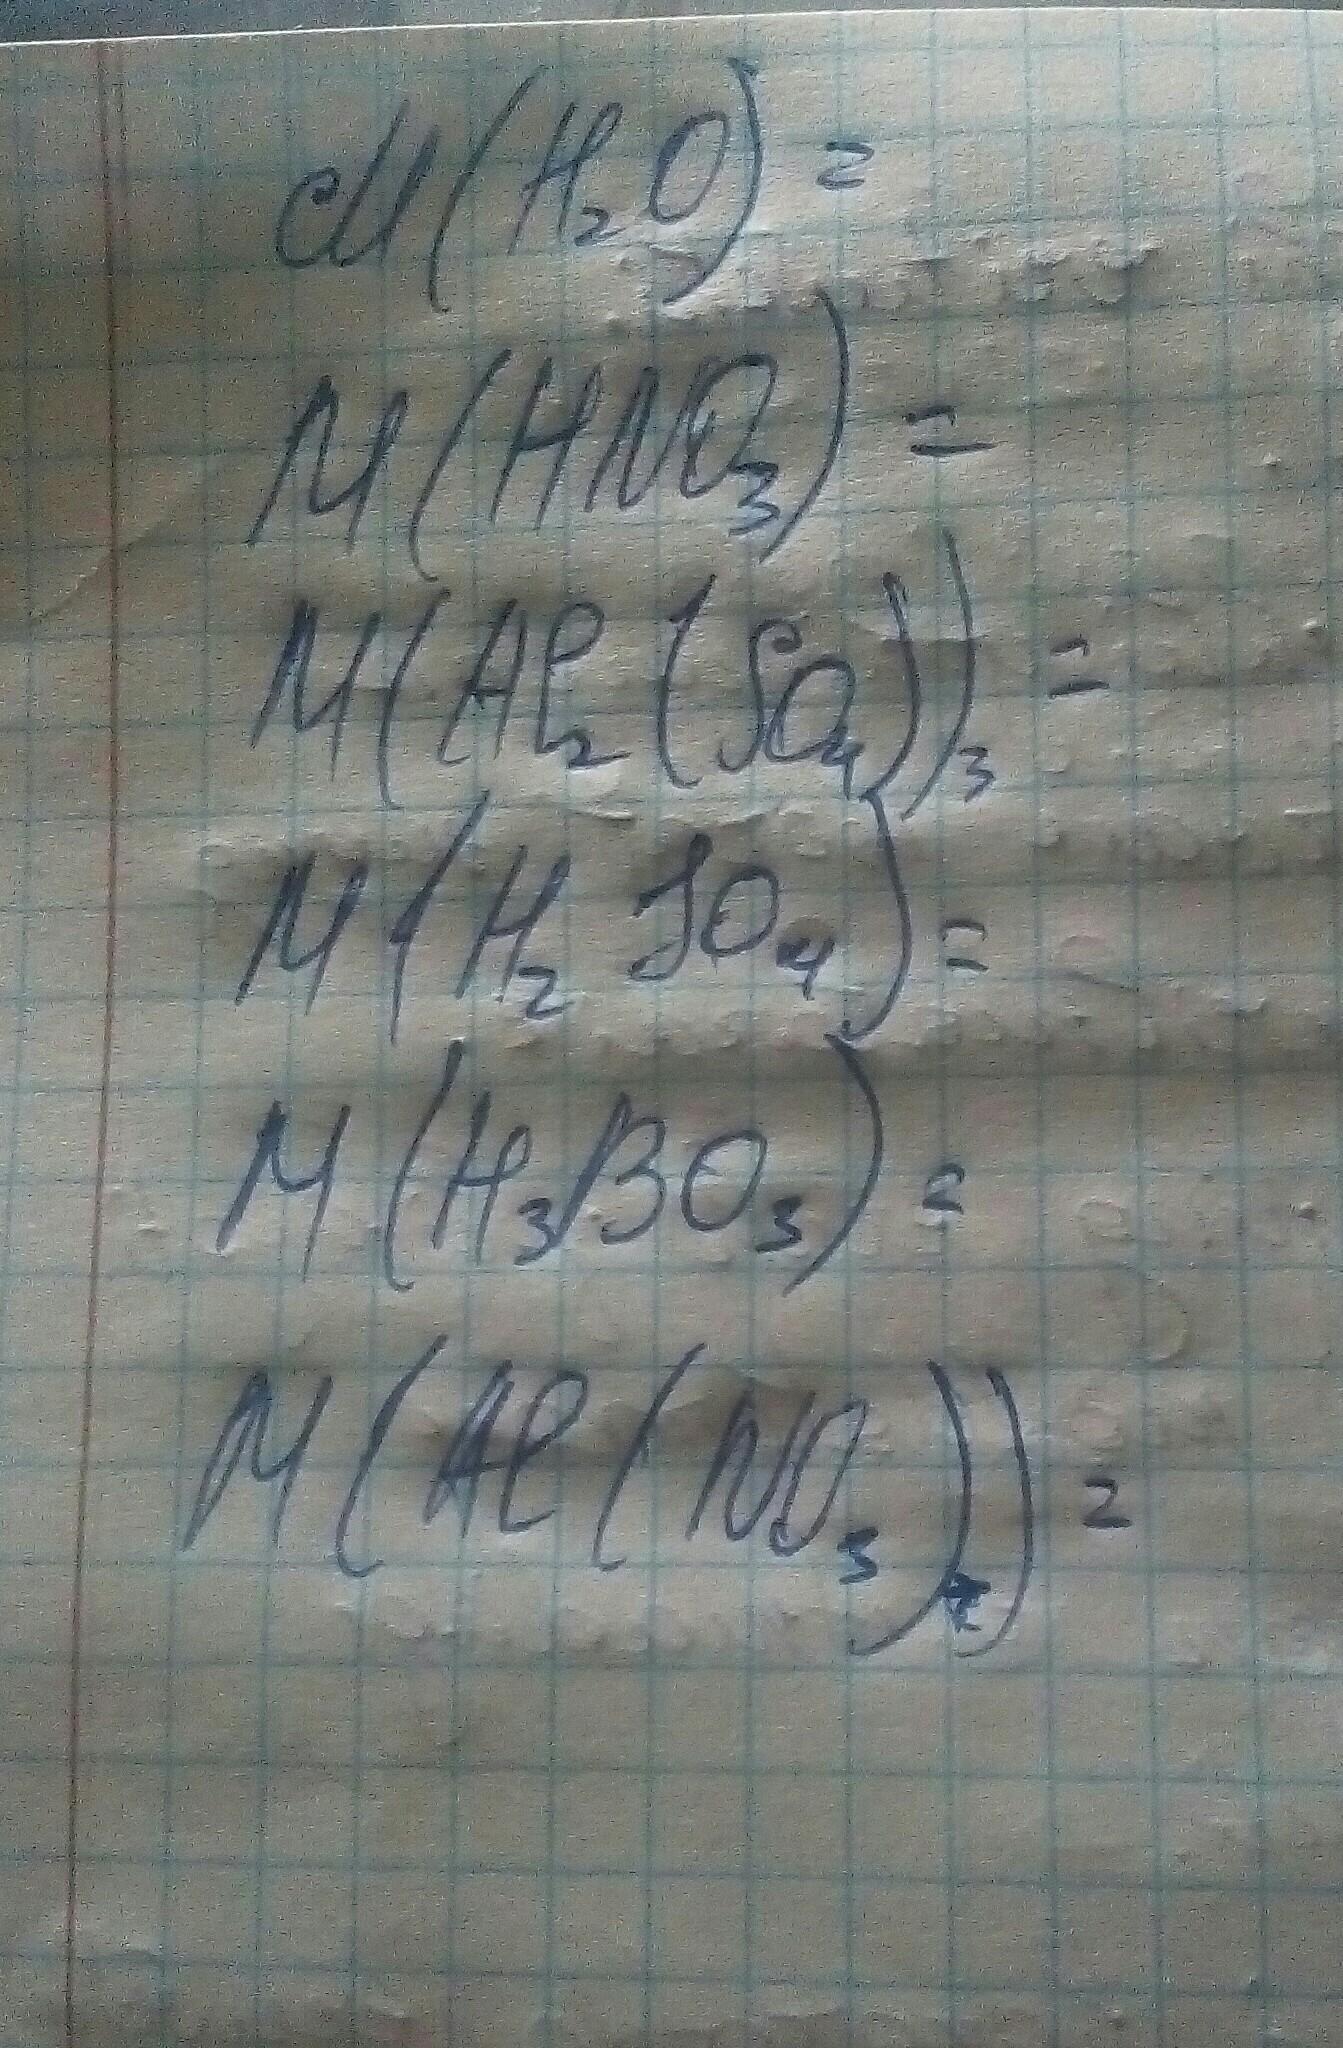 M(H₂O) =
M(HNO₃) =
M(Al₂(SO₄))₃ =
M(H₂SO₄) =
M(H₃BO₃) =
M(Al(NO₃)) =